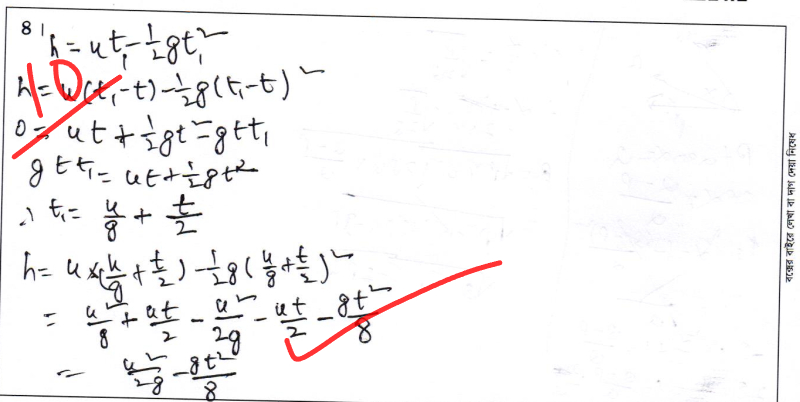 8।
h = ut₁ - ½gt₁²
10
h = u(t₁-t) - ½g(t₁-t)²
0 = ut + ½gt² = gtt₁
gtt₁ = ut + ½gt²
∴ t₁ = u/g + t/2
h = u×(u/g + t/2) - ½g(u/g + t/2)²
= u²/g + ut/2 - u²/2g - ut/2 - gt²/8
= u²/2g - gt²/8
বক্সের বাইরে লেখা বা দাগ দেয়া নিষেধ